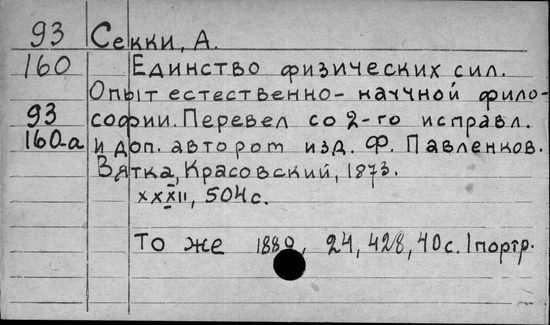 93 Секки, А.
160 Единство физических сил.
Опыт естественно-научной фило-
93 софии. Перевел со 2-го исправл.
160-а и доп. автором изд. Ф. Павленков.
Вятка, Красовский, 1873.
XXXII, 504 с.
То же 1880, 24, 428, 40 с. 1 портр.